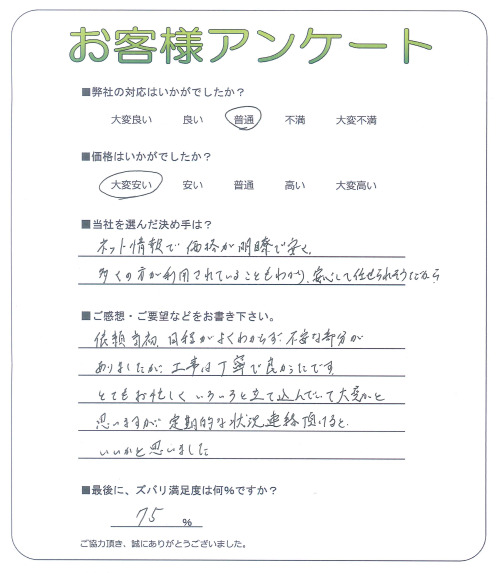 お客様アンケート
■弊社の対応はいかがでしたか？
大変良い 良い 普通 不満 大変不満
■価格はいかがでしたか？
大変安い 安い 普通 高い 大変高い
■当社を選んだ決め手は？
ネット情報で価格が明瞭で安く、
多くの方が利用されていることもわかり、安心して任せられそうだから
■ご感想・ご要望などをお書き下さい。
依頼当初、日程がよくわからず不安な部分が
ありましたが、工事は丁寧で良かったです。
とてもお忙しくいろいろと立て込んでいて大変かと
思いますが、定期的な状況連絡頂けると
いいかと思いました
■最後に、ズバリ満足度は何％ですか？
75 ％
ご協力頂き、誠にありがとうございました。